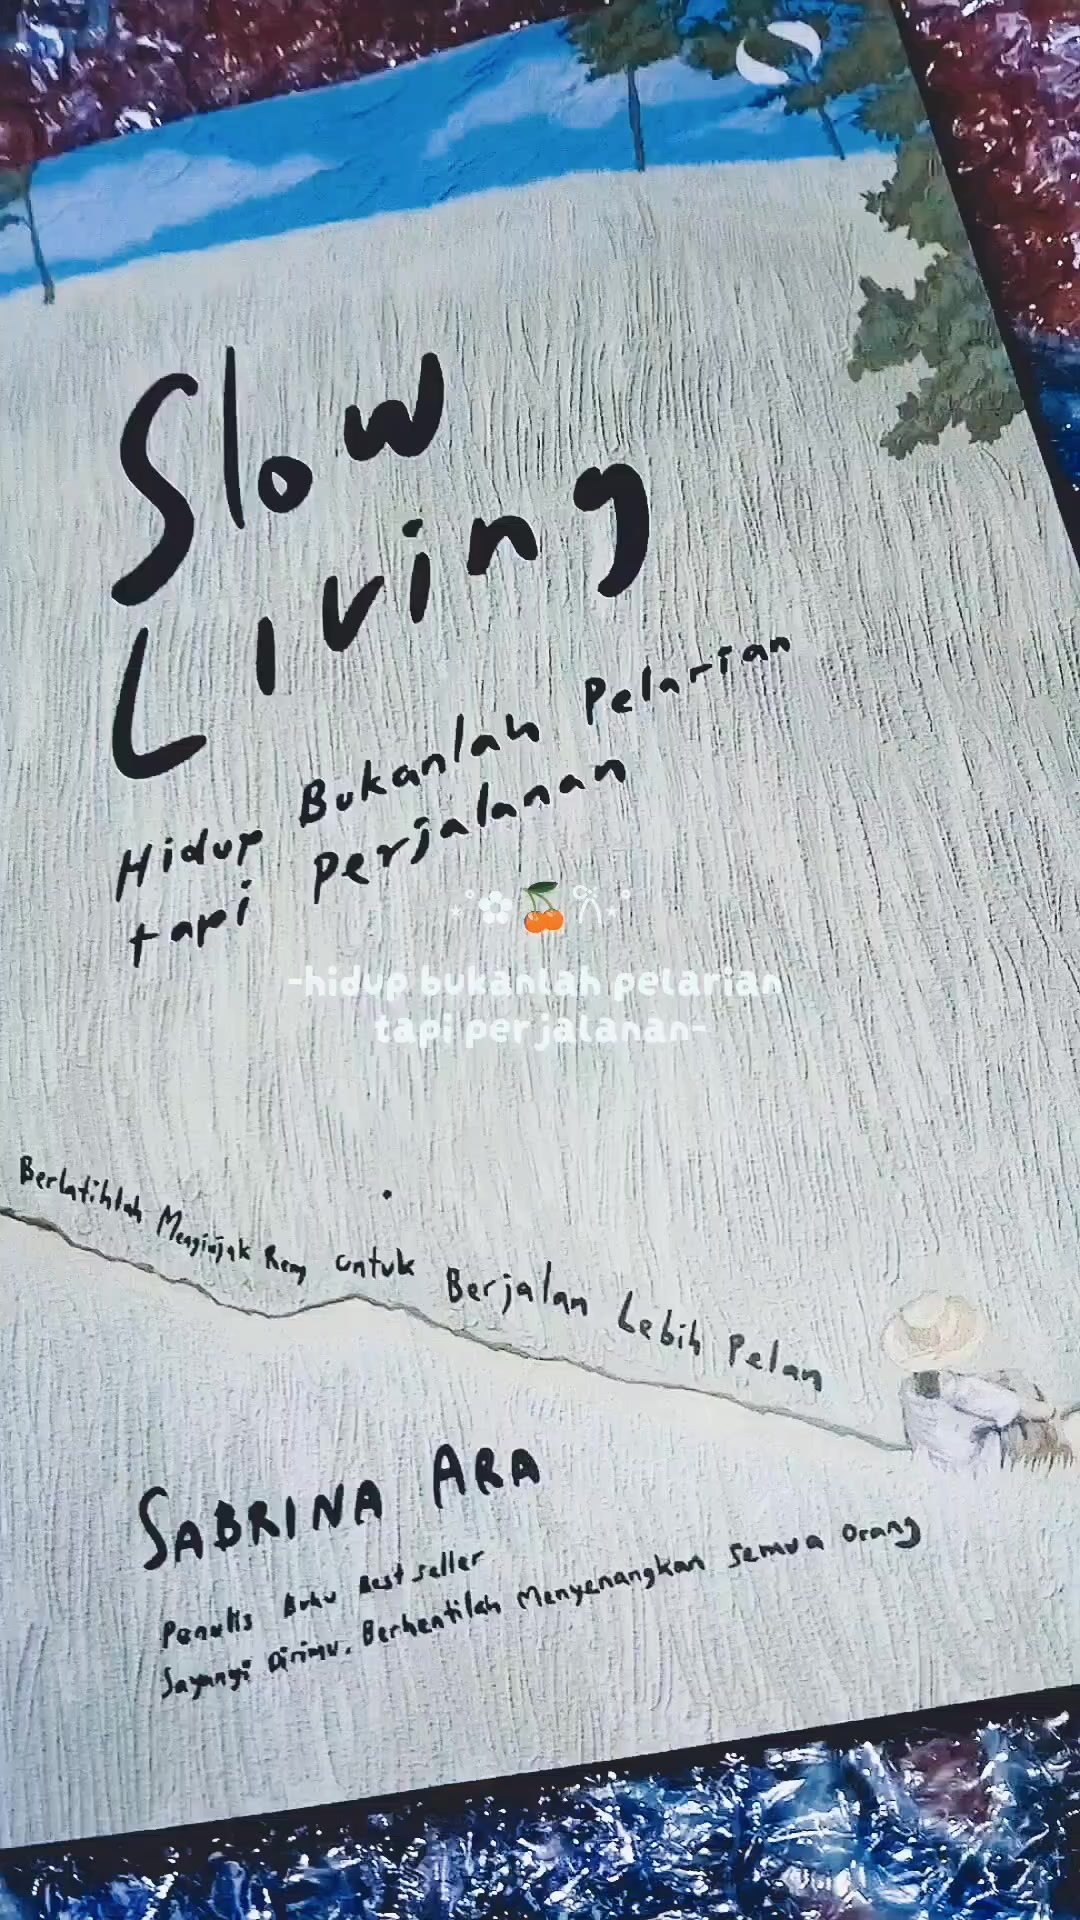 Slow
Living
Hidup Bukanlah Pelarian
tapi Perjalanan
-hidup bukanlah pelarian
tapi perjalanan-
Berlatihlah Menginjak Rem untuk Berjalan Lebih Pelan
SABRINA ARA
Penulis Buku Best seller
Sayangi Dirimu. Berhentilah Menyenangkan Semua Orang